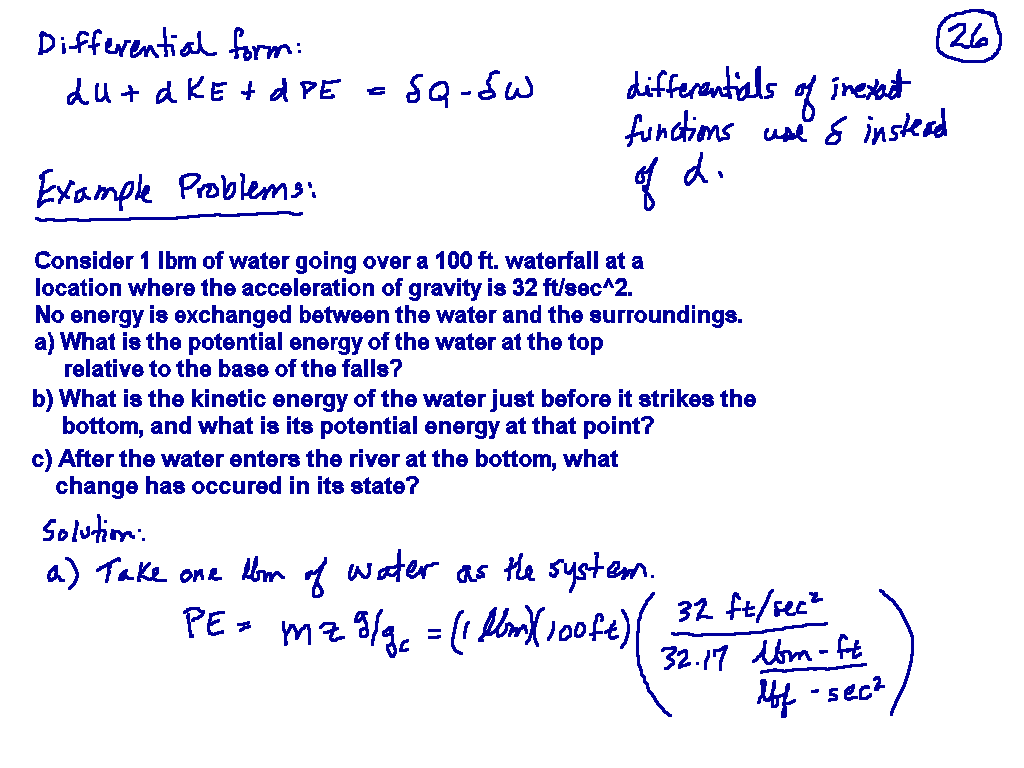 Differential form:
26
dU + dKE + dPE = δQ - δW
differentials of inexact
functions use δ instead
of d.
Example Problems:
Consider 1 lbm of water going over a 100 ft. waterfall at a
location where the acceleration of gravity is 32 ft/sec^2.
No energy is exchanged between the water and the surroundings.
a) What is the potential energy of the water at the top
relative to the base of the falls?
b) What is the kinetic energy of the water just before it strikes the
bottom, and what is its potential energy at that point?
c) After the water enters the river at the bottom, what
change has occured in its state?
Solution:
a) Take one lbm of water as the system.
PE = m z g/gc = (1 lbm)(100ft) (32 ft/sec²
32.17 lbm-ft
lbf-sec²)